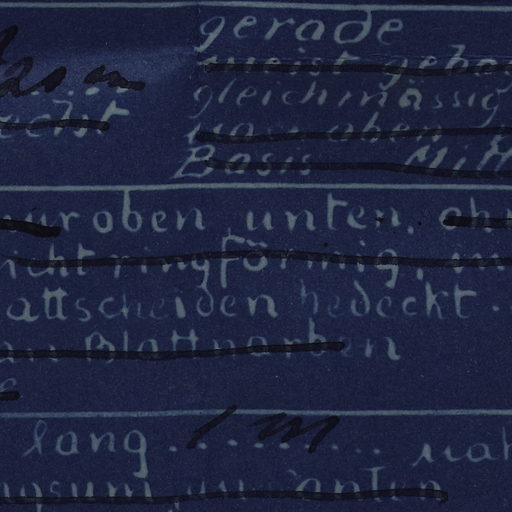 gerade
meist gebo
gleichmässig
von oben
Basis Mitt
nur oben unten. oh
icht ringförmig,
attscheiden bedeckt.
an Blattnarben
lang . 1 m . . . nah